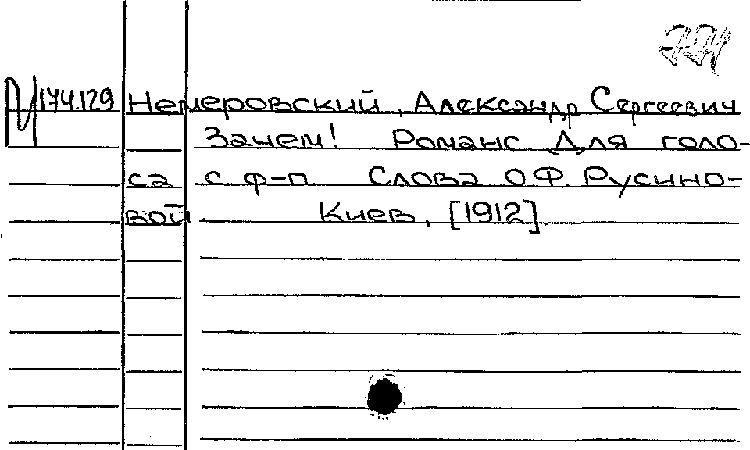 174.129 Немеровский, Александр Сергеевич
Зачем! Романс Для голо-
са с ф-п Слова О.Ф. Русино-
вой Киев, [1912]